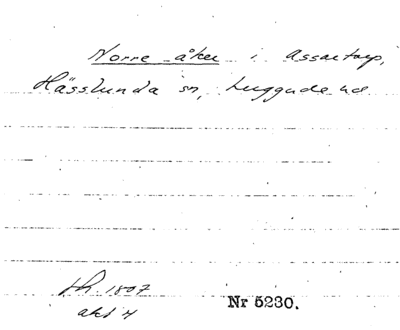 Norre åker i Assartorp,
Hässlunda sn, Luggude hd
1807
akt 4
Nr 5230.